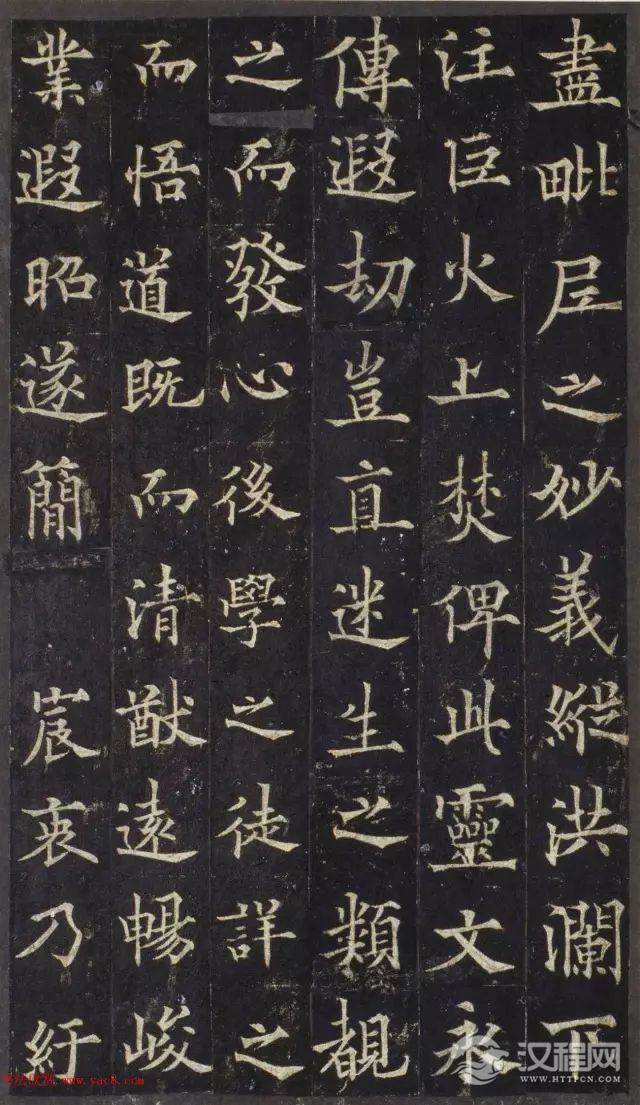 盡毗尼之妙義縱洪瀾下
注巨火上焚俾此靈文永
傳遐劫豈直迷生之類覩
之而發心後學之徒詳之
而悟道既而清猷遠暢峻
業遐昭遂簡 宸衷乃紆
汉程网
WWW.HTTPCN.COM
www.yac8.com